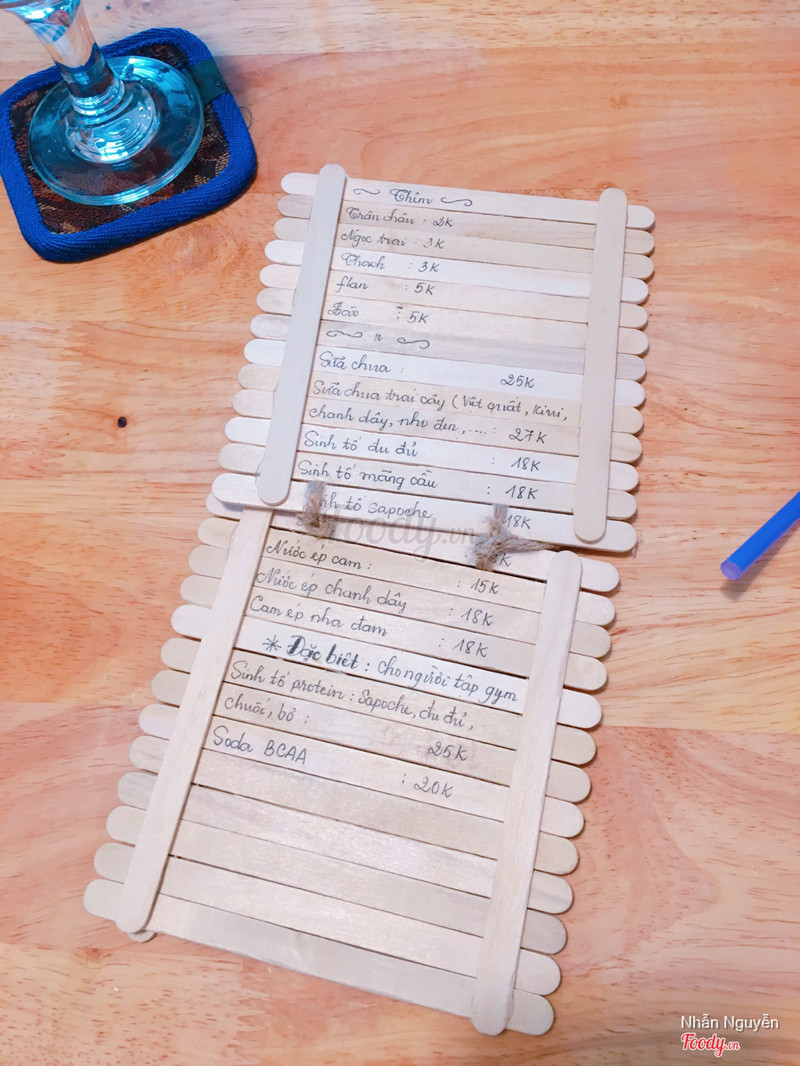 Thêm
Trân châu : 2K
Ngọc trai : 3K
Thạch : 3K
flan : 5K
Đào : 5K
Sữa chua : 25K
Sữa chua trái cây (Việt quất, Kiwi,
chanh dây, nho đen,....: 27K
Sinh tố đu đủ : 18K
Sinh tố mãng cầu : 18K
Sinh tố sapoche 18K
K
Nước ép cam : : 15K
Nước ép chanh dây : 18K
Cam ép nha đam : 18K
* Đặc biệt : cho người tập gym
Sinh tố protein : Sapoche, đu đủ,
chuối, bơ : 25K
Soda BCAA : 20K
foody.vn
Nhẫn Nguyễn
Foody.vn